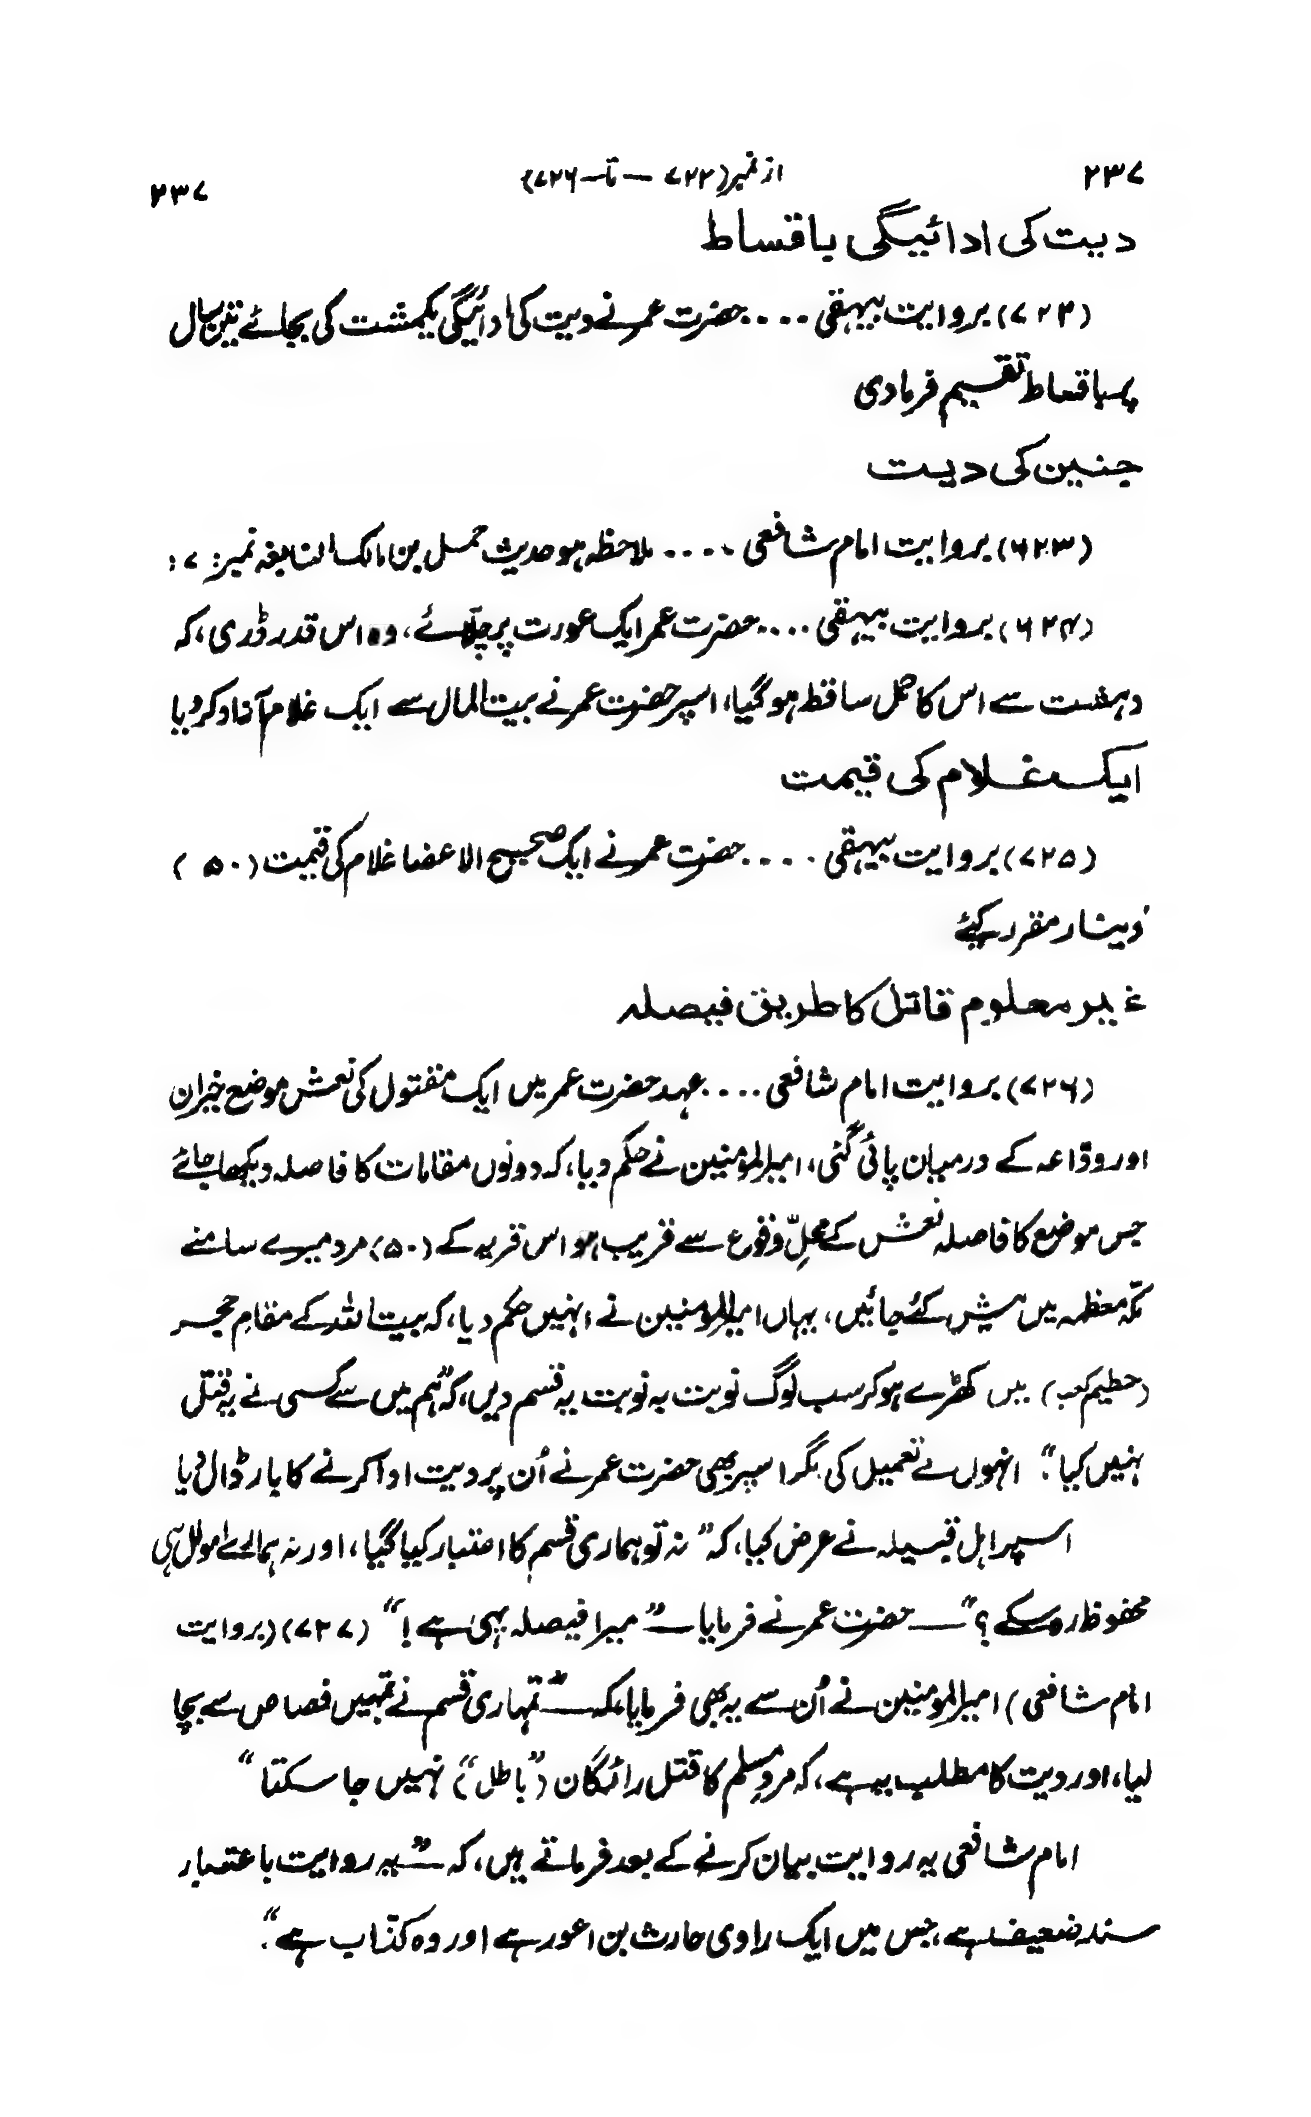 ۲۳۷ از نمبر (۷۲۲ — تا — ۷۲۶) ۲۳۷
دیت کی ادائیگی باقساط
(۷۲۲) بروایت بیہقی .... حضرت عمر نے دیت کی ادائیگی یکمشت کی بجائے تین سال
پر باقساط تقسیم فرما دی
جنین کی دیت
(۶۲۳) بروایت امام شافعی .... ملاحظہ ہو حدیث حمل بن مالک النابغہ نمبر: ۷ :
(۶۲۴) بروایت بیہقی .... حضرت عمر ایک عورت پر چلّائے، وہ اس قدر ڈری، کہ
دہشت سے اس کا حمل ساقط ہو گیا، اسپر حضرت عمر نے بیت المال سے ایک غلام آزاد کر دیا
ایک غلام کی قیمت
(۷۲۵) بروایت بیہقی .... حضرت عمر نے ایک صحیح الاعضا غلام کی قیمت (۵۰)
دینار مقرر کیئے
غیر معلوم قاتل کا طریق فیصلہ
(۷۲۶) بروایت امام شافعی .... عہد حضرت عمر میں ایک مقتول کی نعش موضع خیران
اور وداعہ کے درمیان پائی گئی، امیرالمومنین نے حکم دیا، کہ دونوں مقامات کا فاصلہ دیکھا جائے
جس موضع کا فاصلہ نعش کے محلِّ وقوع سے قریب ہو اس قریہ کے (۵۰) مرد میرے سامنے
مکّہ معظمہ میں پیش کئے جائیں، یہاں امیرالمومنین نے انہیں حکم دیا، کہ بیت اللہ کے مقام حجر
(حطیم کعبہ) میں کھڑے ہو کر سب لوگ نوبت بہ نوبت یہ قسم دیں، کہ "ہم میں سے کسی نے یہ قتل
نہیں کیا"۔ انہوں نے تعمیل کی مگر اسپر بھی حضرت عمر نے اُن پر دیت ادا کرنے کا بار ڈال دیا
اسپر اہل قبیلہ نے عرض کیا، کہ "نہ تو ہماری قسم کا اعتبار کیا گیا، اور نہ ہمارے اموال ہی
محفوظ رہ سکے؟" — حضرت عمر نے فرمایا — "میرا فیصلہ یہی ہے!" (۷۲۷) (بروایت
امام شافعی) امیرالمومنین نے اُن سے یہ بھی فرمایا، کہ — "تمہاری قسم نے تمہیں قصاص سے بچا
لیا، اور دیت کا مطلب یہ ہے، کہ مردِ مسلم کا قتل رائگاں ("باطل") نہیں جا سکتا"
امام شافعی یہ روایت بیان کرنے کے بعد فرماتے ہیں، کہ — "یہ روایت باعتبار
سند ضعیف ہے، جس میں ایک راوی حارث بن اعور ہے اور وہ کذّاب ہے"۔